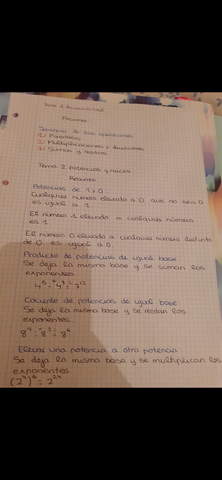 Tema 1
Resumen
Jerarquía de las operaciones
1/ Parentesis
2/ Multiplicaciones y divisiones
3/ Sumas y restas
Tema 2 potencias y raices
Resumen
Potencias de 1 y 0
Cualquier número elevado a 0 que no sea 0
es igual a 1.
El número 1 elevado a cualquier número
es 1.
El número 0 elevado a cualquier número distinto
de 0 es igual a 0.
Producto de potencias de igual base
Se deja la misma base y se suman los
exponentes
Cociente de potencias de igual base
Se deja la misma base y se restan los
exponentes.
Elevar una potencia a otra potencia
Se deja la misma base y se multiplican los
exponentes